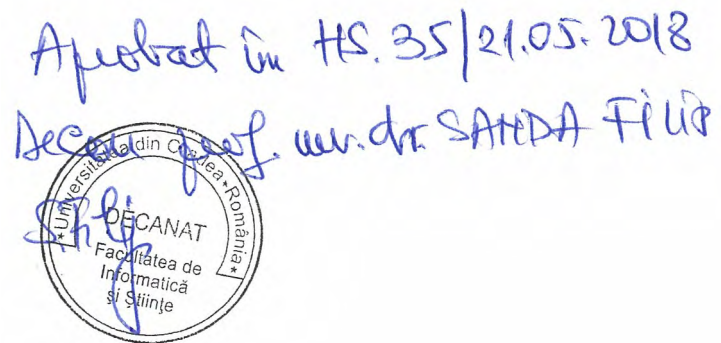 Aprobat în HS. 35/21.05.2018
Decan prof. univ. dr. SANDA FILIP
*Universitatea din Oradea*România*
DECANAT
Facultatea de
Informatică
și Științe